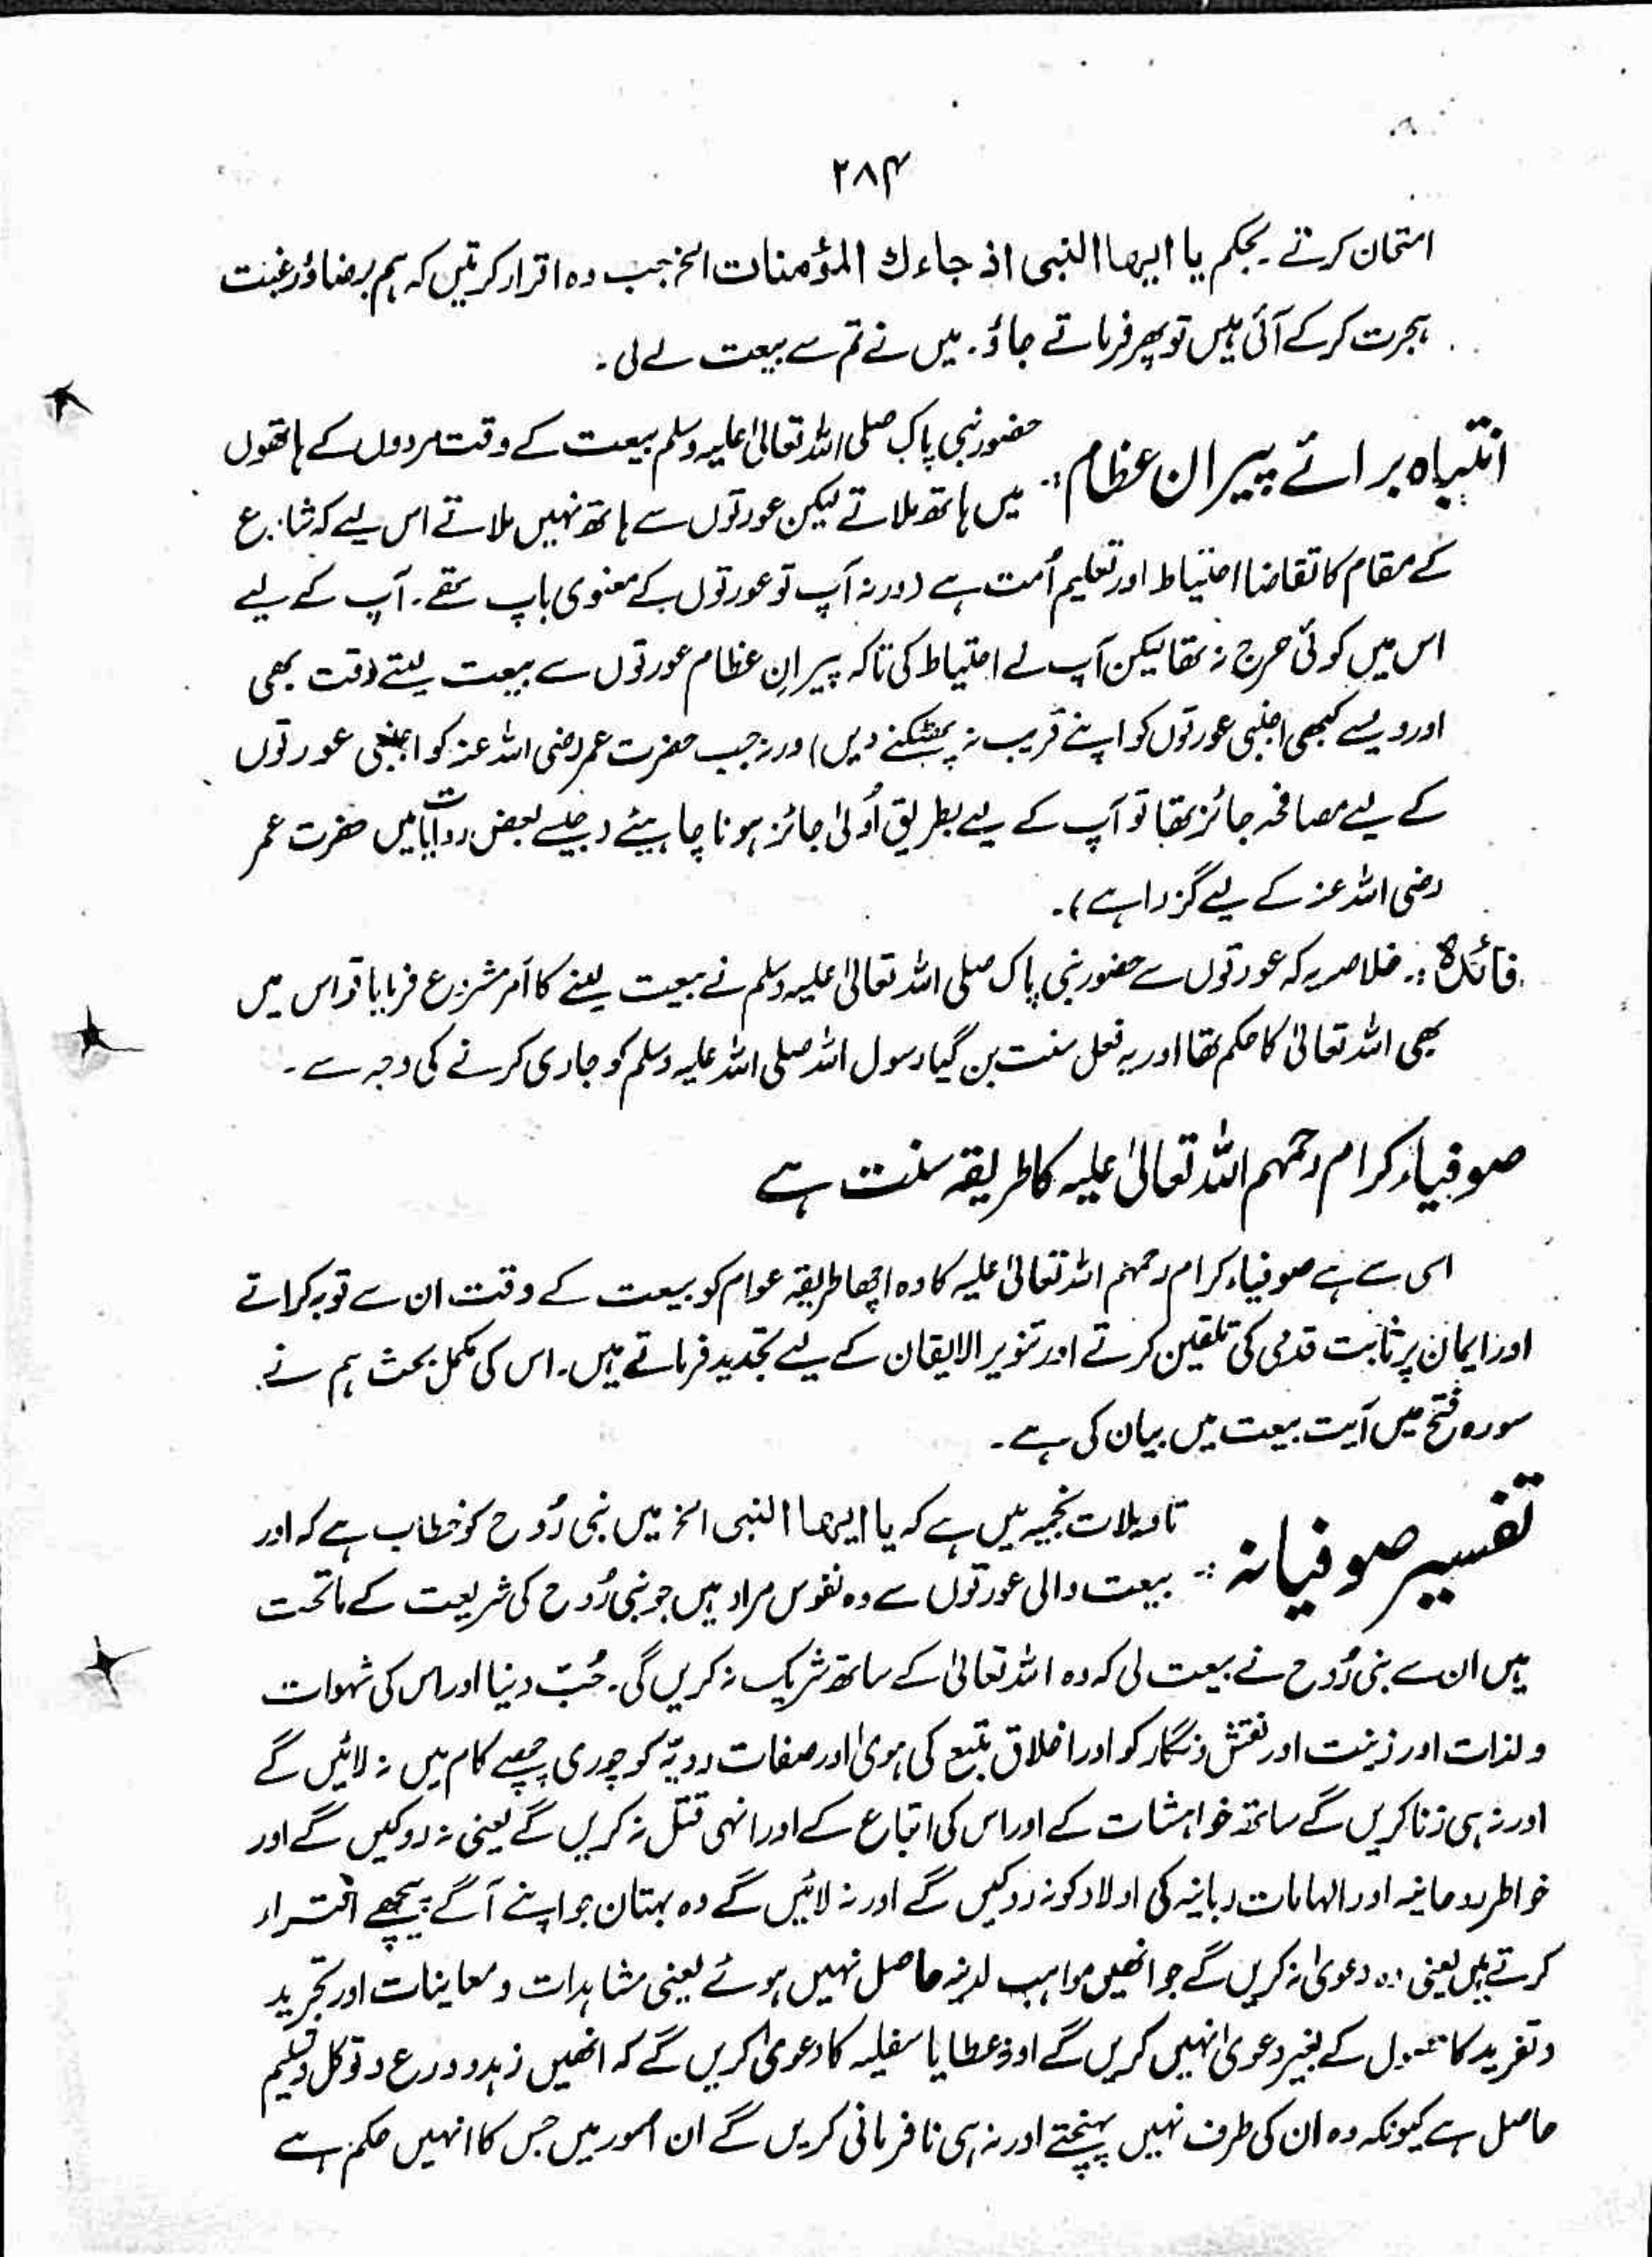 ۲۸۴
امتحان کرتے بحکم یا ایھا النبی اذ جاءك المؤمنات الخ جب وہ اقرار کرتیں کہ ہم برضاؤ رغبت
ہجرت کر کے آئی ہیں تو پھر فرماتے جاؤ۔ میں نے تم سے بیعت لے لی۔
انتباہ برائے پیران عظام :۔ حضور نبی پاک صلی اللہ تعالیٰ علیہ وسلم بیعت کے وقت مردوں کے ہاتھوں
میں ہاتھ ملاتے لیکن عورتوں سے ہاتھ نہیں ملاتے اس لیے کہ شارع
کے مقام کا تقاضا احتیاط اور تعلیم اُمت ہے (ورنہ آپ تو عورتوں کے معنوی باپ تھے۔ آپ کے لیے
اس میں کوئی حرج نہ تھا لیکن آپ نے احتیاط کی تاکہ پیرانِ عظام عورتوں سے بیعت لیتے وقت بھی
اور ویسے کبھی اجنبی عورتوں کو اپنے قریب نہ پھٹکنے دیں) ورنہ جب حضرت عمر رضی اللہ عنہ کو اجنبی عورتوں
کے لیے مصافحہ جائز تھا تو آپ کے لیے بطریق اُولیٰ جائز ہونا چاہیئے (جیسے بعض روایات میں حضرت عمر
رضی اللہ عنہ کے لیے گزرا ہے)۔
فائدہ :۔ خلاصہ یہ کہ عورتوں سے حضور نبی پاک صلی اللہ تعالیٰ علیہ وسلم نے بیعت لینے کا اَمر مشروع فرمایا تو اس میں
بھی اللہ تعالیٰ کا حکم تھا اور یہ فعل سنت بن گیا رسول اللہ صلی اللہ علیہ وسلم کو جاری کرنے کی وجہ سے۔
صوفیاء کرام رحمہم اللہ تعالیٰ علیہ کا طریقہ سنت ہے
اسی سے ہے صوفیاء کرام رحمہم اللہ تعالیٰ علیہ کا وہ اچھا طریقہ عوام کو بیعت کے وقت ان سے توبہ کراتے
اور ایمان پر ثابت قدمی کی تلقین کرتے اور تنویر الایقان کے لیے تجدید فرماتے ہیں۔ اس کی مکمل بحث ہم نے
سورہ فتح میں آیت بیعت میں بیان کی ہے۔
تفسیر صوفیانہ :۔ تاویلات نجمیہ میں ہے کہ یا ایھا النبی الخ میں نبی رُوح کو خطاب ہے کہ اور
بیعت والی عورتوں سے وہ نفوس مراد ہیں جو نبی رُوح کی شریعت کے ماتحت
ہیں ان سے نبی رُوح نے بیعت لی کہ وہ اللہ تعالیٰ کے ساتھ شریک نہ کریں گی۔ حُبّ دنیا اور اس کی شہوات
و لذات اور زینت اور نقش و نگار کو اور اخلاق بتبع کی ہویٰ اور صفات ردیّہ کو چوری چھپے کام میں نہ لائیں گے
اور نہ ہی زنا کریں گے ساتھ خواہشات کے اور اس کی اتباع کے اور انہی قتل نہ کریں گے یعنی نہ روکیں گے اور
خواطر روحانیہ اور الہامات ربانیہ کی اولاد کو نہ روکیں گے اور نہ لائیں گے وہ بہتان جو اپنے آگے پیچھے افتراء
کرتے ہیں یعنی وہ دعویٰ نہ کریں گے جو انھیں مواہب لدنیہ حاصل نہیں ہوئے یعنی مشاہدات و معاینات اور تجرید
و تفرید کا حصول کے بغیر دعویٰ نہیں کریں گے اور عطایا سفلیہ کا دعویٰ کریں گے کہ انھیں زہد و ورع و توکل و تسلیم
حاصل ہے کیونکہ وہ ان کی طرف نہیں پہنچتے اور نہ ہی نافرمانی کریں گے ان امور میں جس کا انہیں حکم ہے